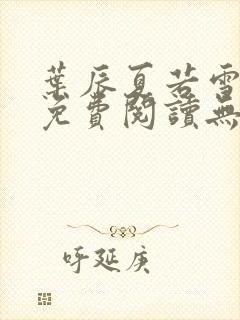 葉辰夏若雪
免費閱讀無
呼延庚